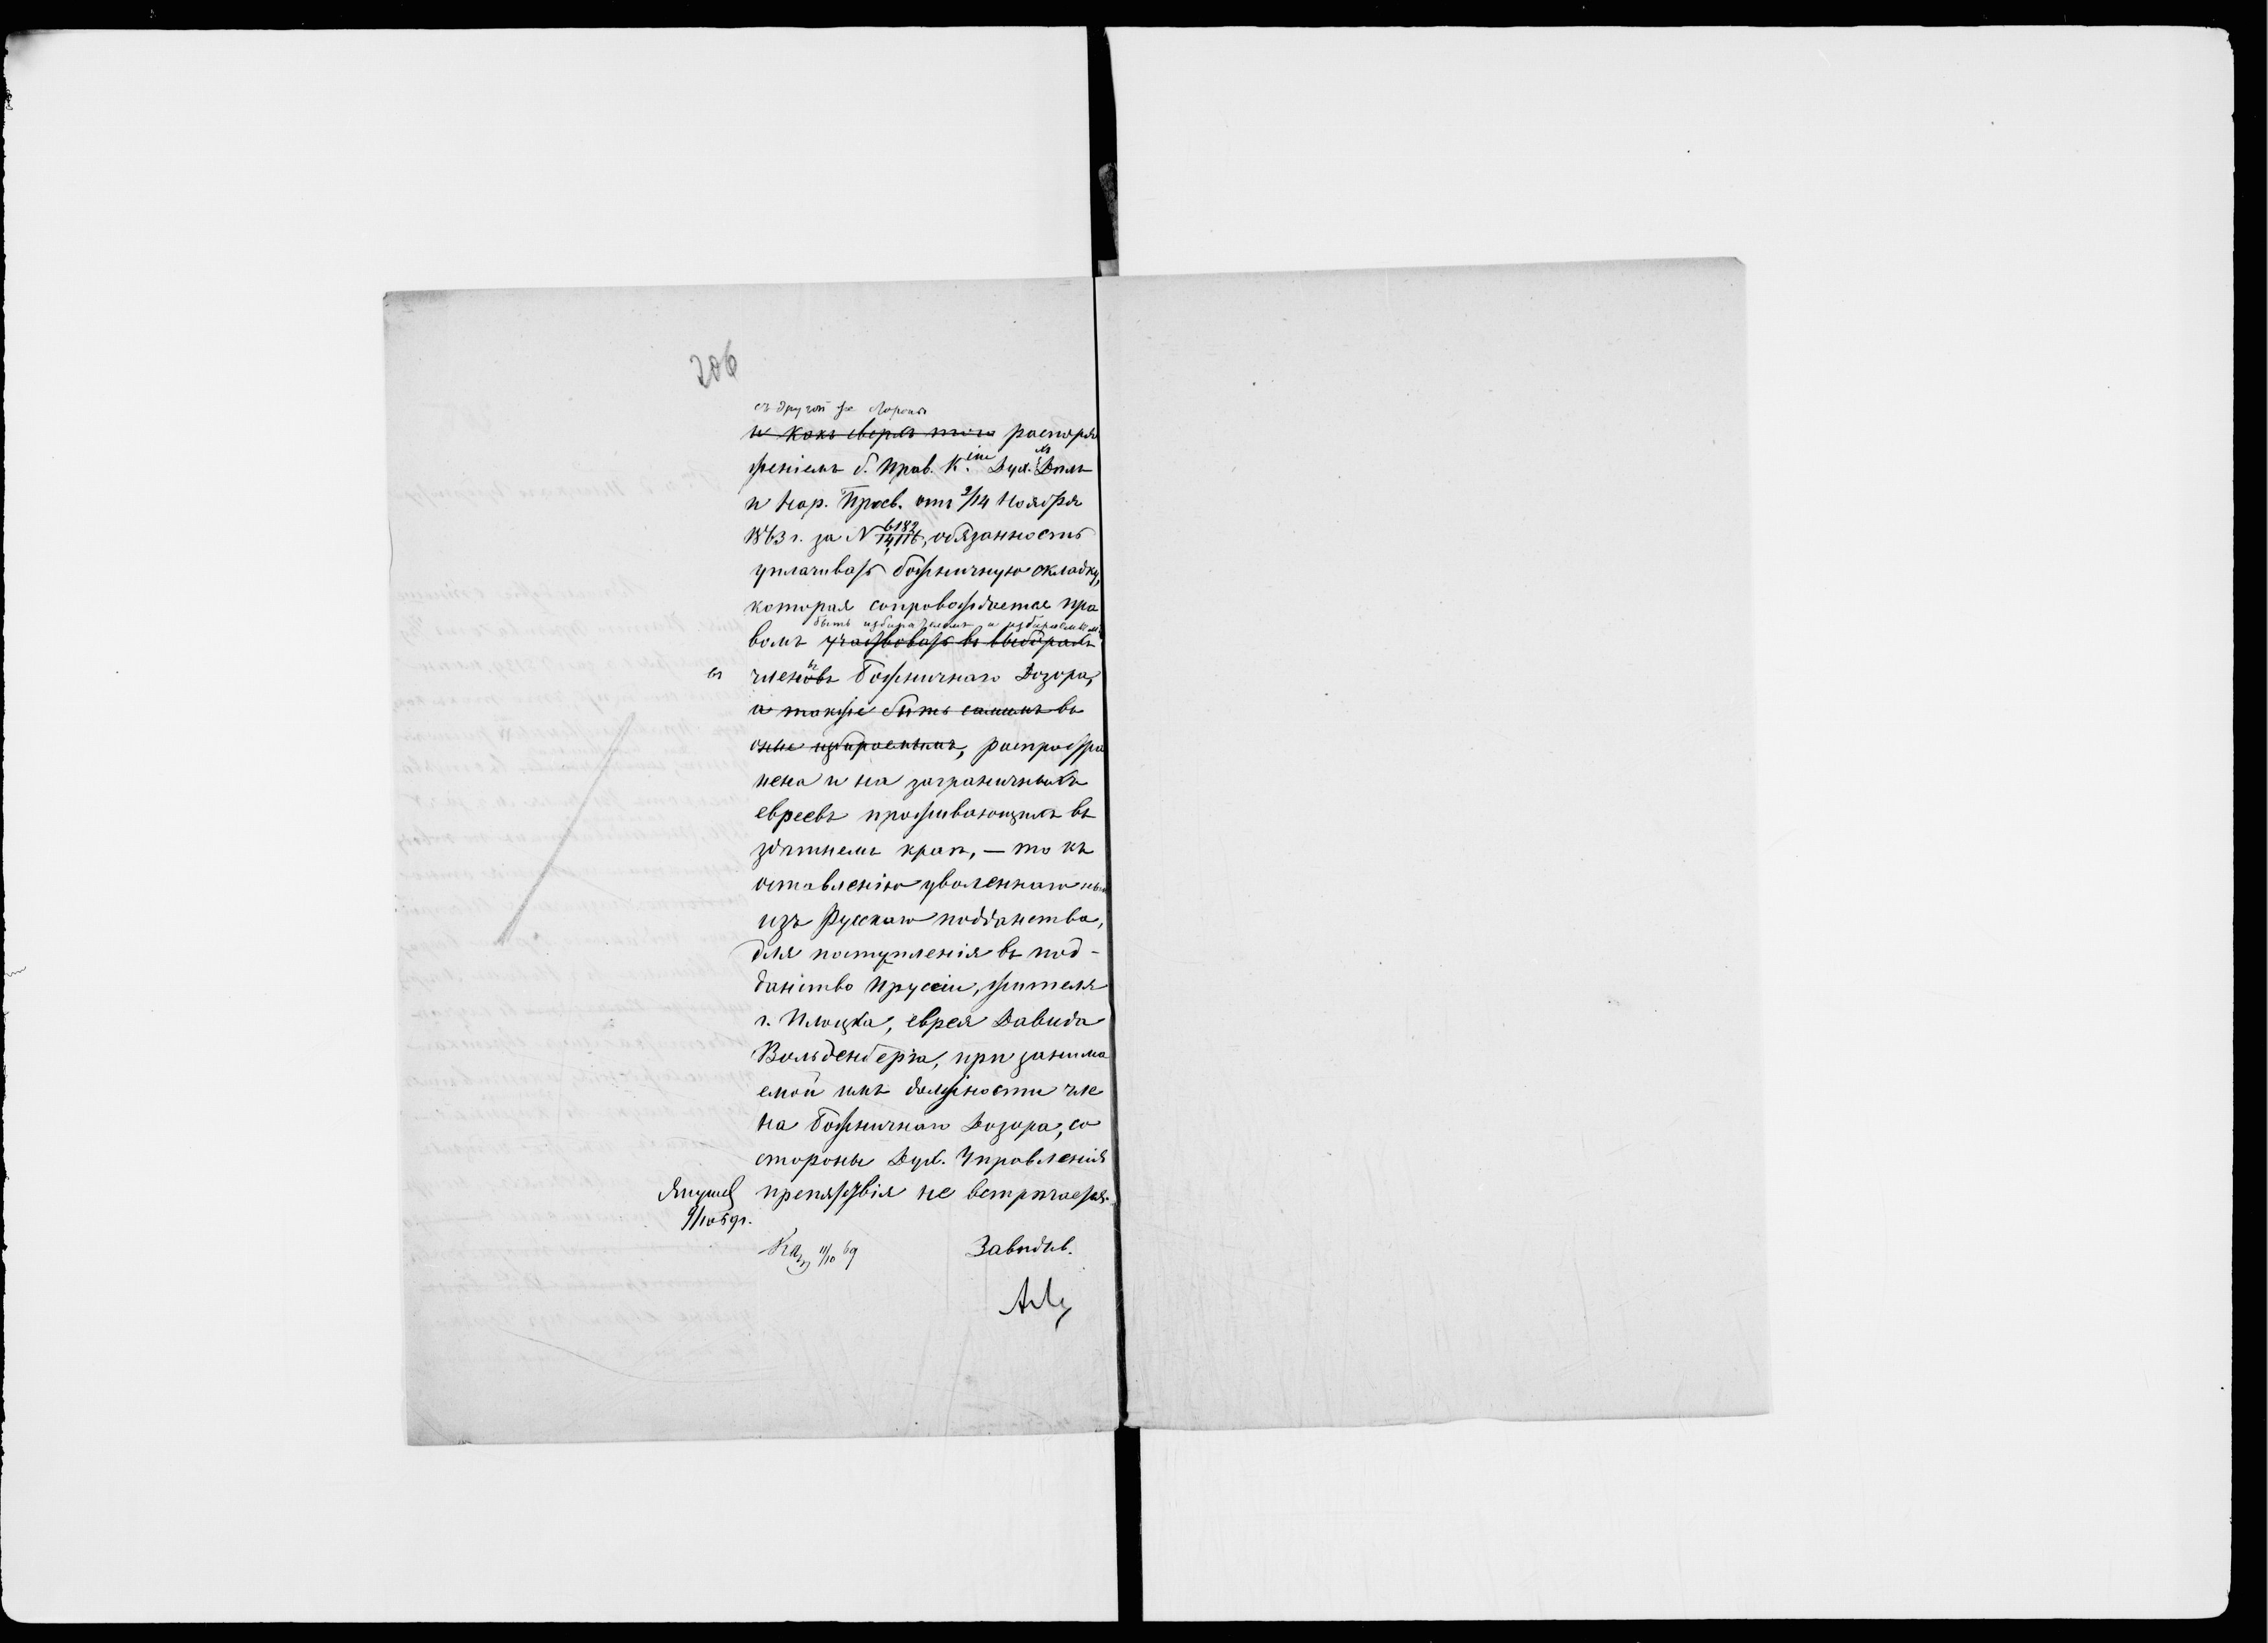 206
съ другой же стороны
и какъ сверхъ того распоря
женіемъ б. Прав. К.сіи Дух. Дѣлъ
и Нар. Просв. отъ 2/14 Ноября
1863 г. за N 6182/14116, обязанность
уплачивать божничную складку,
которая сопровождается пра
быть избирателемъ и избираемымъ
вомъ участвовать въ выборахъ
въ члены божничнаго Дозора,
а также быть самимъ въ
оные избираемымъ, распростра
нена и на заграничныхъ
евреевъ проживающихъ въ
здѣшнемъ краѣ, — то къ
оставленію уволеннаго
изъ Русскаго подданства,
для поступленія въ под-
данство Пруссіи, жителя
г. Плоцка, еврея Давида
Вольденберга, при занима
емой имъ должности чле
на божничнаго Дозора, со
стороны Дух. Управленія
препятствія не встрѣчается.
9/10 69 г.
11/10 69
Завѣдыв.